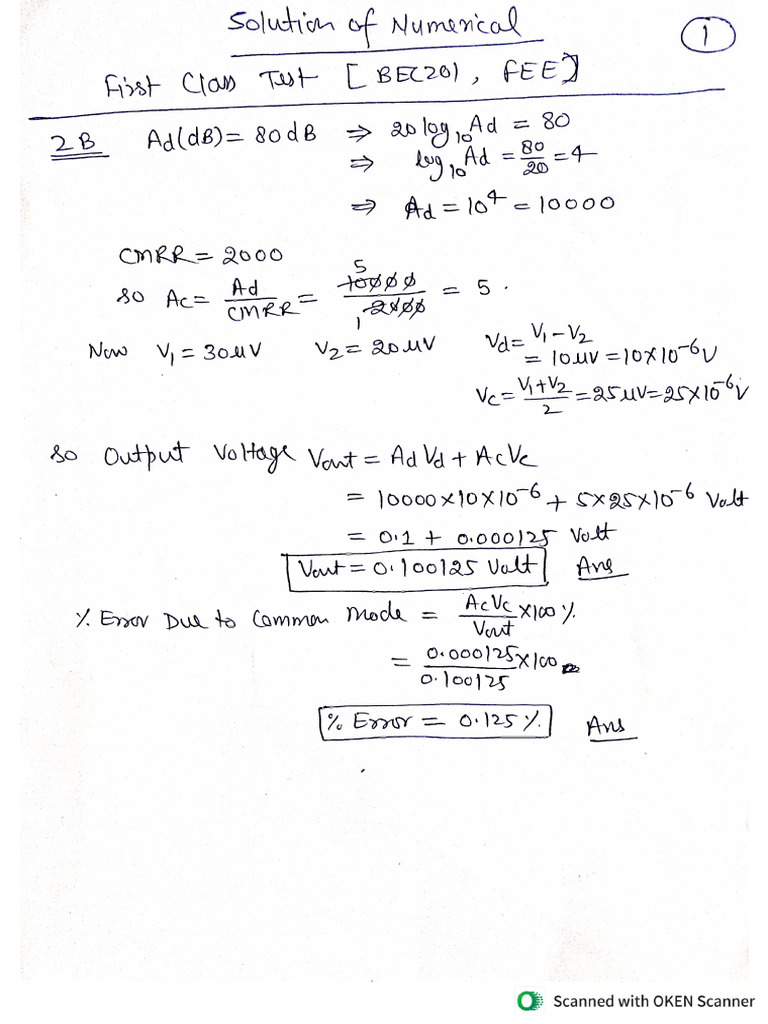 Solution of Numerical
1
First Class Test [BEC201, FEE]
2B Ad(dB) = 80dB ⇒ 20 log₁₀ Ad = 80
⇒ log₁₀ Ad = 80/20 = 4
⇒ Ad = 10⁴ = 10000
CMRR = 2000
so Ac = Ad/CMRR = 10000/2000 = 5.
Now V₁ = 30μV V₂ = 20μV Vd = V₁ - V₂
= 10μV = 10×10⁻⁶V
Vc = (V₁+V₂)/2 = 25μV = 25×10⁻⁶V
so Output Voltage Vout = AdVd + AcVc
= 10000×10×10⁻⁶ + 5×25×10⁻⁶ Volt
= 0.1 + 0.000125 Volt
Vout = 0.100125 Volt Ans
% Error Due to Common Mode = AcVc/Vout ×100 %
= 0.000125/0.100125 ×100
% Error = 0.125 % Ans
Scanned with OKEN Scanner